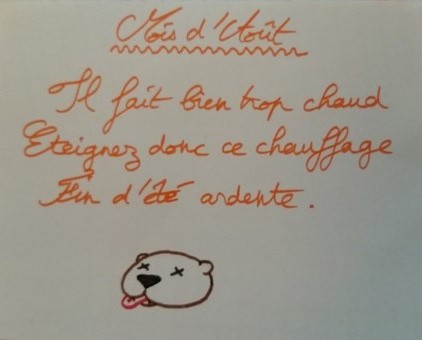 Mois d'Août
Il fait bien trop chaud
Eteignez donc ce chauffage
Fin d'été ardente.